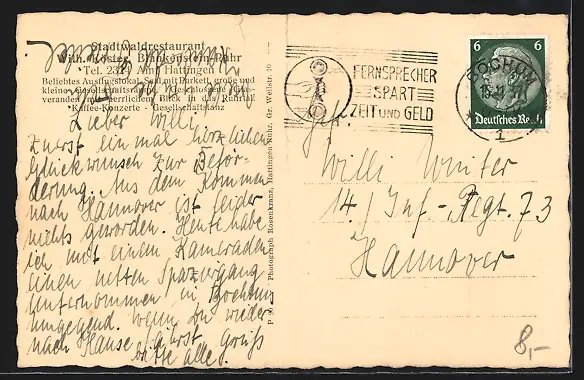 Stadtwaldrestaurant
Wilh. Köster, Blankenstein-Ruhr
Tel. 2321 Amt Hattingen
Beliebtes Ausflugslokal, Saal mit Parkett, große und
kleine Gesellschaftsräume, Geschlossene Glas-
veranden mit herrlichem Blick in das Ruhrtal
Kaffee-Konzerte Gesellschaftstanz
Lieber Willi,
Zuerst einmal herzlichen
Glückwunsch zur Beför-
derung. Aus dem Kommen
nach Hannover ist leider
nichts geworden. Heute habe
ich mit einem Kameraden
einen netten Spaziergang
unternommen in Bochums
Umgegend. Wenn Du wieder
nach Hause fährst, grüß
bitte alle.
Photograph Rosenkranz, Hattingen-Ruhr, Gr. Weilstr. 10
FERNSPRECHER
SPART
ZEIT UND GELD
BOCHUM
1
6 6
Deutsches Reich
Willi Winter
14./ Inf.-Regt. 73
Hannover
8,-